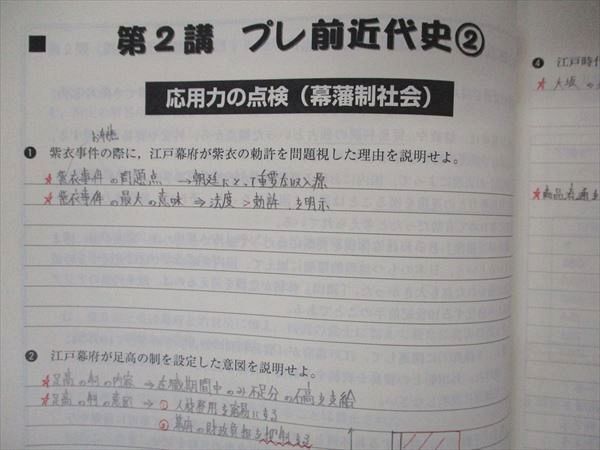 ■ 第2講 プレ前近代史②
応用力の点検（幕藩制社会）
❶ 紫衣事件の際に，江戸幕府が紫衣の勅許を問題視した理由を説明せよ。
★紫衣事件の問題点 → 朝廷にとって重要な収入源
★紫衣事件の最大の意味 → 法度＞勅許を明示
❷ 江戸幕府が足高の制を設定した意図を説明せよ。
★足高の制の内容 → 在職期間中のみ不足分の石高を支給
★足高の制の意図 → ① 人材登用を容易にする
② 幕府の財政負担を抑制する
❹ 江戸時代
★大坂の
★商品流通を